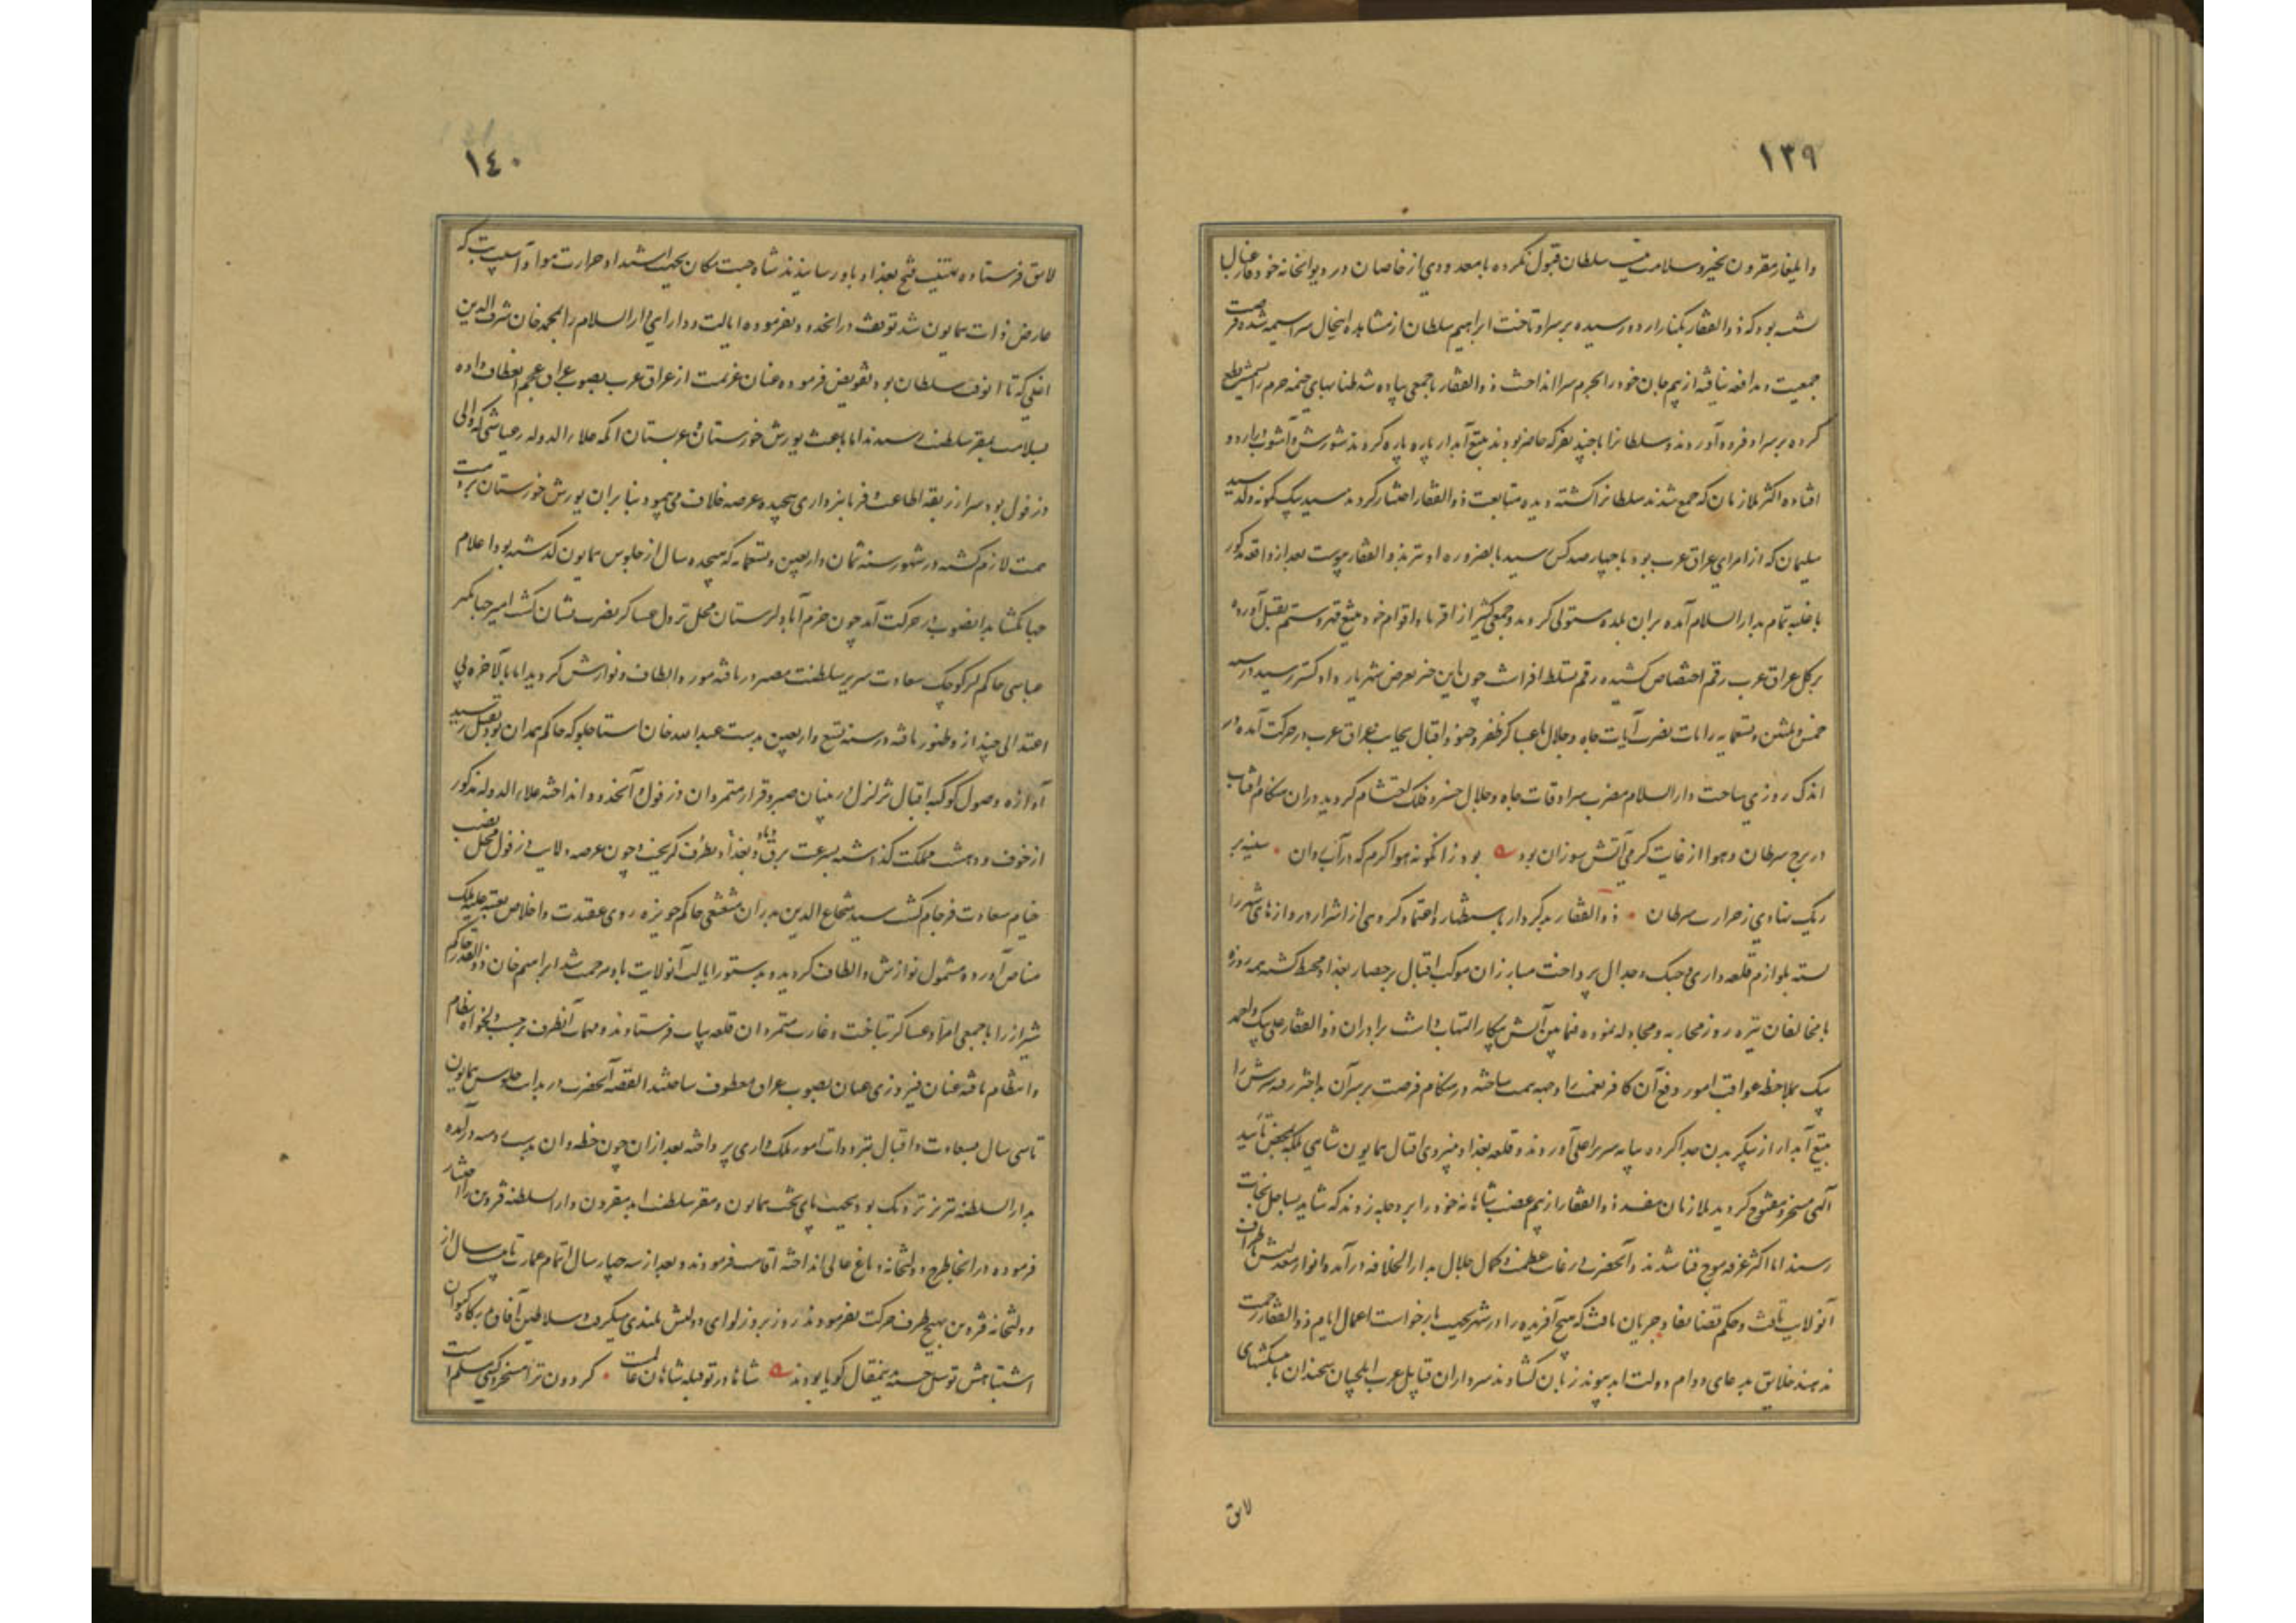 ١٣٩
و ایلیغار مقرون بخیر و سلامت نیست سلطان قبول نکرده با معدودی از خاصان در دیوانخانه خود غافل
نشسته بود که ذوالفقار بکنار اردو رسیده بر سر او تاخت ابراهیم سلطان از مشاهده اینحال سراسیمه شده فرصت
جمعیت و مدافعه نیافته از بیم جان خود را بحرم سرا انداخت ذوالفقار با جمعی پیاده شد طنابهای خیمه حرم را بشمشیر قطع
کرده بر سر او فرود آوردند و سلطانرا با چند نفر که حاضر بودند بتیغ آبدار پاره پاره کردند شورش و آشوب در اردو
افتاده اکثر ملازمان که جمع شدند سلطانرا کشته دیده متابعت ذوالفقار اختیار کردند سید بیک کمونه ولد سید
سلیمان که از امرای عراق عرب بود با چهارصد کس سید بالضروره او نیز بذوالفقار پیوست بعد از واقعه مذکور
با غلبه تمام بدار السلام آمده بر ان بلده مستولی گردید و جمعی کثیر از اقربا و اقوام خود بتیغ قهر و ستم بقتل آورده
بر کل عراق عرب رقم اختصاص کشیده رقم تسلط افراشت چون این خبر بعرض شهریار داد گستر رسید در سنه
خمس و ثلثین و تسعمایه رایات نصرت آیات جاه و جلال با عساکر ظفر و جنود اقبال بجانب عراق عرب در حرکت آمده در
اندک روزی ساحت دار السلام مضرب سرادقات جاه و جلال خسرو فلک احتشام گردید در ان هنگام آفتاب
در برج سرطان و هوا از غایت گرمی آتش سوزان بود بود زانگونه هوا گرم که در آب روان سینه بر
ریک نهادی ز حرارت سرطان ذوالفقار بدکردار باستظهار و اعتماد گروهی از اشرار در دروازهای شهر را
بسته بلوازم قلعه داری و جنگ و جدال پرداخت مبارزان موکب اقبال بر حصار بغداد محیط گشته همه روزه
با مخالفان تیره روز محاربه و مجادله نموده فیمابین آتش پیکار التهاب داشت برادران ذوالفقار علی بیک و احمد
بیک بملاحظه عواقب امور دفع آن کافر نعمت را وجهه همت ساخته در هنگام فرصت بر سر آن بداختر رفته سرش را
بتیغ آبدار از پیکر بدن جدا کرده بپایه سریر اعلی آوردند و قلعه بغداد بنیروی اقبال همایون شاهی بلکه بمحض تأیید
الهی مسخر و مفتوح گردید ملازمان مفسد ذوالفقار از بیم غضب شاهانه خود را بر دجله زدند که شاید بساحل نجات
رسند اما اکثر غرقه موج فنا شدند و آنحضرت در غایت عظمت و کمال جلال بدار الخلافه در آمده انوار معدلتش بر اطراف
آنولایت تافت و حکم قضا نفاذ جریان یافت که هیچ آفریده را در شهر بجهت بازخواست اعمال ایام ذوالفقار زحمت
ندهند خلایق بدعای دوام دولت ابد پیوند زبان گشادند سرداران قبایل عرب ایلچیان سخندان با پیشکشهای
لایق
١٤٠
لایق فرستاده تهنیت فتح بغداد باو رسانیدند شاه جنت مکان بجهت اشتداد حرارت هوا و آسیبیکه
عارض ذات همایون شد توقف در انحدود نفرموده ایالت و دارایی دار السلام را بمحمد خان شرف الدین
اغلی که تا انوقت سلطان بود تفویض فرموده عنان عزیمت از عراق عرب بصوب عراق عجم انعطاف داده
بسلامت بمقر سلطنت رسیدند اما باعث یورش خوزستان و عربستان انکه علاء الدوله رعناشی که والی
دزفول بود سر از ربقه اطاعت و فرمانبرداری پیچیده عرصه خلاف می پیمود بنابر ان یورش خوزستان بر ذمت
همت لازم گشته در شهور سنه ثمان و اربعین و تسعمایه که هیجده سال از جلوس همایون گذشته بود اعلام
جهانگشا بدانصوب در حرکت آمد چون خرم آباد لرستان محل نزول عساکر نصرت نشان گشت امیر جهانگیر
عباسی حاکم لر کوچک سعادت سریر سلطنت مصیر دریافته مورد الطاف و نوازش گردید اما بالآخره بی
اعتدالی چند از و ظهور یافته در سنه تسع و اربعین بدست عبدالله خان استاجلو که حاکم همدان بود بقتل رسید
آوازه وصول کوکبه اقبال تزلزل در بنیان صبر و قرار متمردان دزفول و آنحدود انداخته علاء الدوله مذکور
از خوف و دهشت مملکت گذاشته بسرعت برق و باد بغداد بطرف گریخت و چون عرصه ولایت دزفول محل نصب
خیام سعادت فرجام گشت سید شجاع الدین بدران مشعشعی حاکم حویزه روی عقیدت و اخلاص بعتبه علیه فلک
مناص آورده مشمول نوازش و الطاف گردید و بدستور ایالت آنولایت باو مرحمت شد ابراهیم خان ذوالقدر حاکم
شیراز را با جمعی امرا و عساکر بتاخت و غارت متمردان قلعه بیات فرستادند و مهمات آنطرف بر حسب دلخواه نظام
و انتظام یافته عنان فیروزی عنان بصوب عراق معطوف ساختند القصه آنحضرت در بدایت جلوس همایون
تا سی سال بسعادت و اقبال بترددات امور ملک داری پرداخته بعد از ان چون خطه وان بدست رومیه در آمده
بدار السلطنه تبریز نزدیک بود بجهت پای تخت همایون و مقر سلطنت ابد مقرون دار السلطنه قزوین را اختیار
فرموده در انجا طرح دولتخانه و باغ عالی انداخته اقامت فرمودند و بعد از سه چهار سال اتمام عمارت تا بیست سال از
دولتخانه قزوین بهیچ طرف حرکت نفرمودند روز بروز لوای دولتش بلندی میگرفت و سلاطین آفاق ببارگاه کیوان
اشتباهش توسل جسته بدینمقال گویا بودند شاها در تو قبله شاهان عالمست گردون ترا مسخر و گیتی مسلم است